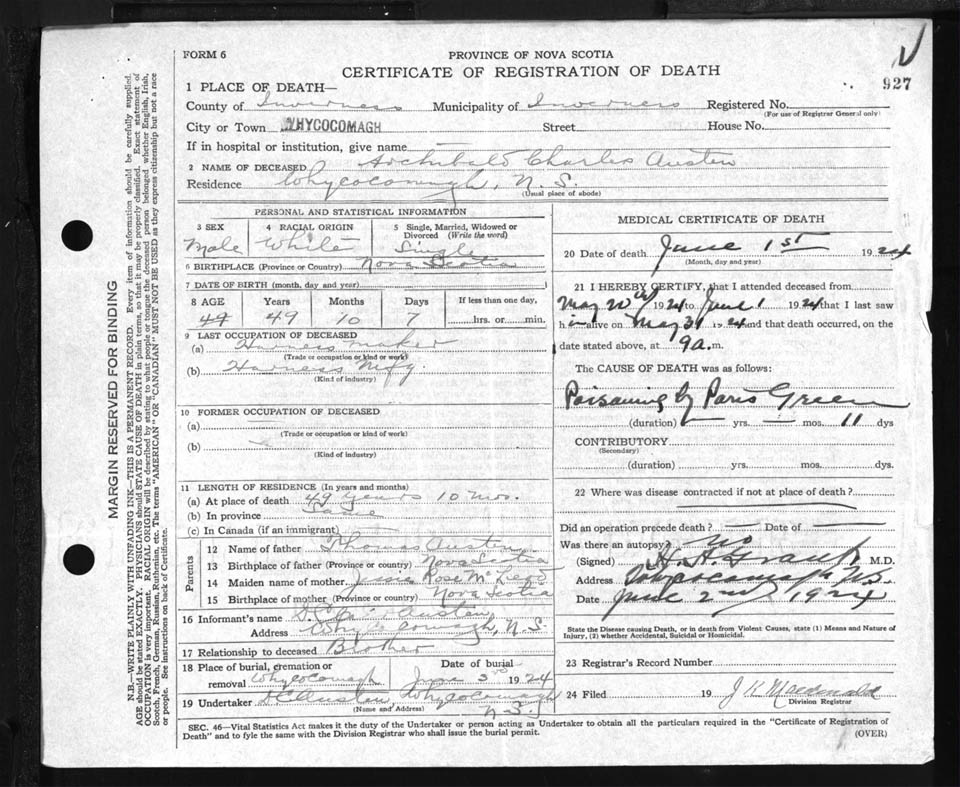 FORM 6
PROVINCE OF NOVA SCOTIA
CERTIFICATE OF REGISTRATION OF DEATH
927
1 PLACE OF DEATH—
County of Inverness Municipality of Inverness Registered No.
(For use of Registrar General only)
City or Town WHYCOCOMAGH Street House No.
If in hospital or institution, give name
2 NAME OF DECEASED Archibald Charles Austen
Residence Whycocomagh, N.S.
(Usual place of abode)
PERSONAL AND STATISTICAL INFORMATION
3 SEX 4 RACIAL ORIGIN 5 Single, Married, Widowed or Divorced (Write the word)
Male White Single
6 BIRTHPLACE (Province or Country) Nova Scotia
7 DATE OF BIRTH (month, day and year)
8 AGE Years Months Days If less than one day,
49 49 10 7 hrs. or min.
9 LAST OCCUPATION OF DECEASED
(a) Harness maker
(Trade or occupation or kind or work)
(b) Harness Mfg.
(Kind of industry)
10 FORMER OCCUPATION OF DECEASED
(a)
(Trade or occupation or kind of work)
(b)
(Kind of industry)
11 LENGTH OF RESIDENCE (In years and months)
(a) At place of death 49 years 10 mos.
(b) In province Same
(c) In Canada (if an immigrant)
Parents
12 Name of father Thomas Austen
13 Birthplace of father (Province or country) Nova Scotia
14 Maiden name of mother Rose
15 Birthplace of mother (Province or country) Nova Scotia
16 Informant's name Austen
Address Whycocomagh, N.S.
17 Relationship to deceased Brother
18 Place of burial, cremation or removal Whycocomagh Date of burial June 3 1924
19 Undertaker Austen, Whycocomagh
(Name and Address) N.S.
MEDICAL CERTIFICATE OF DEATH
20 Date of death June 1st 1924
(Month, day and year)
21 I HEREBY CERTIFY, that I attended deceased from
May 20th 1924 to June 1 1924 that I last saw
h alive on May 31 1924 and that death occurred, on the
date stated above, at 9 a.m.
The CAUSE OF DEATH was as follows:
Poisoning by Paris Green
(duration) yrs. mos. 11 dys
CONTRIBUTORY
(Secondary)
(duration) yrs. mos. dys.
22 Where was disease contracted if not at place of death?
Did an operation precede death? Date of
Was there an autopsy? No
(Signed) M.D.
Address Whycocomagh N.S.
Date June 2nd 1924
State the Disease causing Death, or in death from Violent Causes, state (1) Means and Nature of
Injury, (2) whether Accidental, Suicidal or Homicidal.
23 Registrar's Record Number
24 Filed 19 J K Macdonald
Division Registrar
SEC. 46—Vital Statistics Act makes it the duty of the Undertaker or person acting as Undertaker to obtain all the particulars required in the "Certificate of Registration of
Death" and to fyle the same with the Division Registrar who shall issue the burial permit.
(OVER)
MARGIN RESERVED FOR BINDING
N.B.—WRITE PLAINLY WITH UNFADING INK—THIS IS A PERMANENT RECORD. Every item of information should be carefully supplied.
AGE should be stated EXACTLY. PHYSICIANS should STATE CAUSE OF DEATH in plain terms, so that it may be properly classified. Exact statement of
OCCUPATION is very important. RACIAL ORIGIN will be described by stating to what people or tongue the deceased person belonged whether English, Irish,
Scotch, French, German, Russian, Ruthenian, etc. The terms "AMERICAN" OR "CANADIAN" MUST NOT BE USED as they express citizenship but not a race
or people. See instructions on back of Certificate.